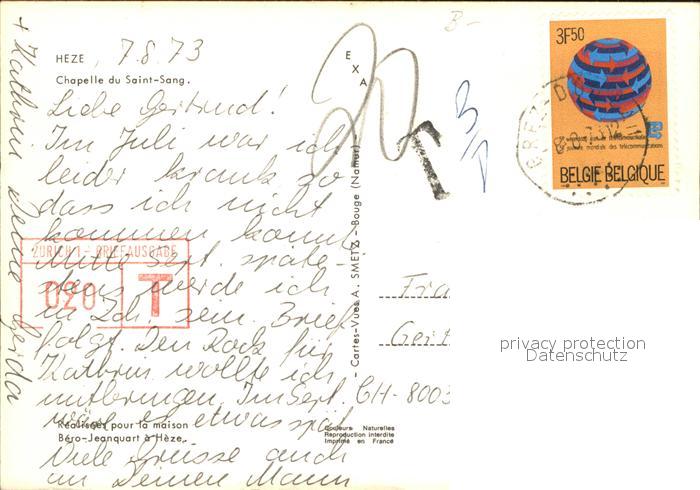 HEZE
7.8.73
Chapelle du Saint-Sang.
Liebe Gertrud!
Im Juli war ich
leider krank so
dass ich nicht
kommen konnte.
Mitte Sept. späte-
stens werde ich
in Zch. sein. Brief
folgt. Den Rock für
Kathrin wollte ich
mitbringen. Im Sept.
wäre es etwas spät
Viele Grüsse auch
an Deinen Mann
+ Kathrin Deine Gerda
ZÜRICH 1 - BRIEFAUSGABE
020 T
Réalisées pour la maison
Béro-Jeanquart à Hèze.
EXA
T
B
Cartes-Vues A. SMETZ - Bouge (Namur)
Couleurs Naturelles
Reproduction interdite
Imprimé en France
3F50
journée mondiale des télécommunications
BELGIE BELGIQUE
Fra
Ger
CH-8003
privacy protection
Datenschutz